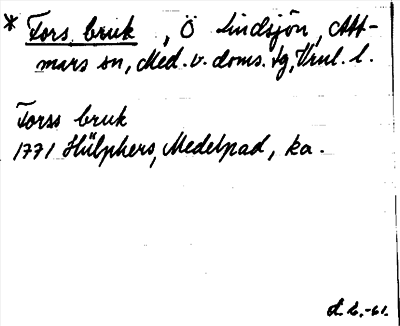 * Fors bruk, Ö Lindsjön, Att-
mars sn, Med. v. doms. tg, Vnl. l.
Forss bruk
1771 Hülphers, Medelpad, ka.